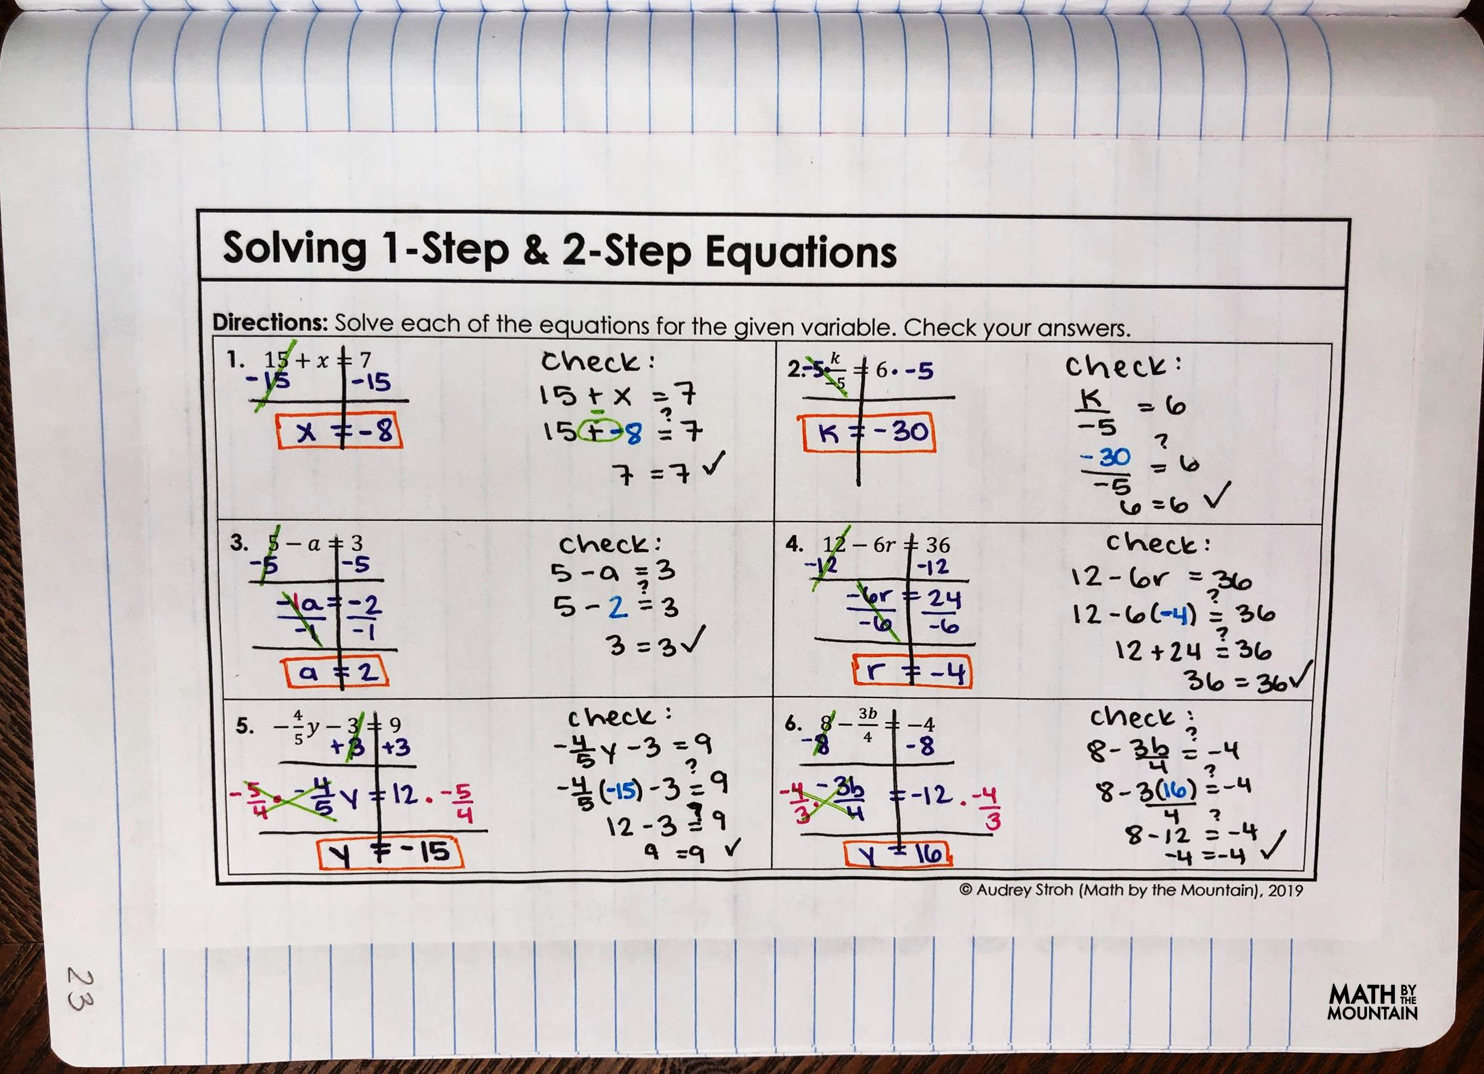 Solving 1-Step & 2-Step Equations
Directions: Solve each of the equations for the given variable. Check your answers.
1. 15 + x = 7
-15 -15
x = -8
check:
15 + x = 7
?
15 + -8 = 7
7 = 7 ✓
2. -5 · k/-5 = 6 · -5
K = -30
check:
K/-5 = 6
?
-30/-5 = 6
6 = 6 ✓
3. 5 − a = 3
-5 -5
-1a/-1 = -2/-1
a = 2
check:
5 - a = 3
?
5 - 2 = 3
3 = 3 ✓
4. 12 − 6r = 36
-12 -12
-6r/-6 = 24/-6
r = -4
check:
12 - 6r = 36
?
12 - 6(-4) = 36
?
12 + 24 = 36
36 = 36 ✓
5. −4/5 y − 3 = 9
+3 +3
-5/4 · -4/5 y = 12 · -5/4
y = -15
check:
-4/5 y - 3 = 9
?
-4/5 (-15) - 3 = 9
?
12 - 3 = 9
9 = 9 ✓
6. 8 − 3b/4 = −4
-8 -8
-4/3 · -3b/4 = -12 · -4/3
y = 16
check:
?
8 - 3b/4 = -4
?
8 - 3(16)/4 = -4
?
8 - 12 = -4
-4 = -4 ✓
© Audrey Stroh (Math by the Mountain), 2019
23
MATH BY THE
MOUNTAIN